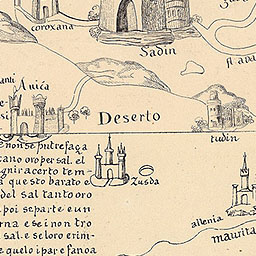 coroxana
Sadin
Deserto
tudin
Zusda
e non se putrefaça
cano oro per sal. el
gnira certo tem
a questo barato e
del sal tanto oro
poi se parte e un
rna e se i non tro
sal. e se loro crim
e quelo i par e fano a
allenia
maurita